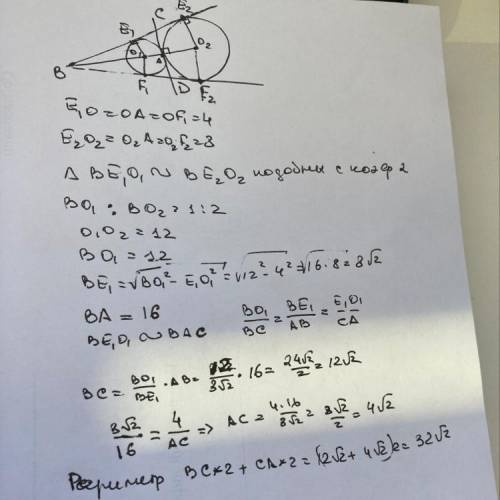 C E₂
E₁
O₁ A O₂
B
F₁ D F₂
E₁O = OA = OF₁ = 4
E₂O₂ = O₂A = O₂F₂ = 8
Δ BE₁O₁ ~ BE₂O₂ подобны с коэф 2
BO₁ : BO₂ = 1:2
O₁O₂ = 12
BO₁ = 12
BE₁ = √BO₁² - E₁O₁² = √12² - 4² = √16 · 8 = 8√2
BA = 16
BE₁O₁ ~ BAC BO₁/BC = BE₁/AB = E₁O₁/CA
BC = BO₁/BE₁ · AB = 12/8√2 · 16 = 24√2/2 = 12√2
8√2/16 = 4/AC => AC = 4·16/8√2 = 8√2/2 = 4√2
Периметр BC*2 + CA*2 = (12√2 + 4√2)2 = 32√2